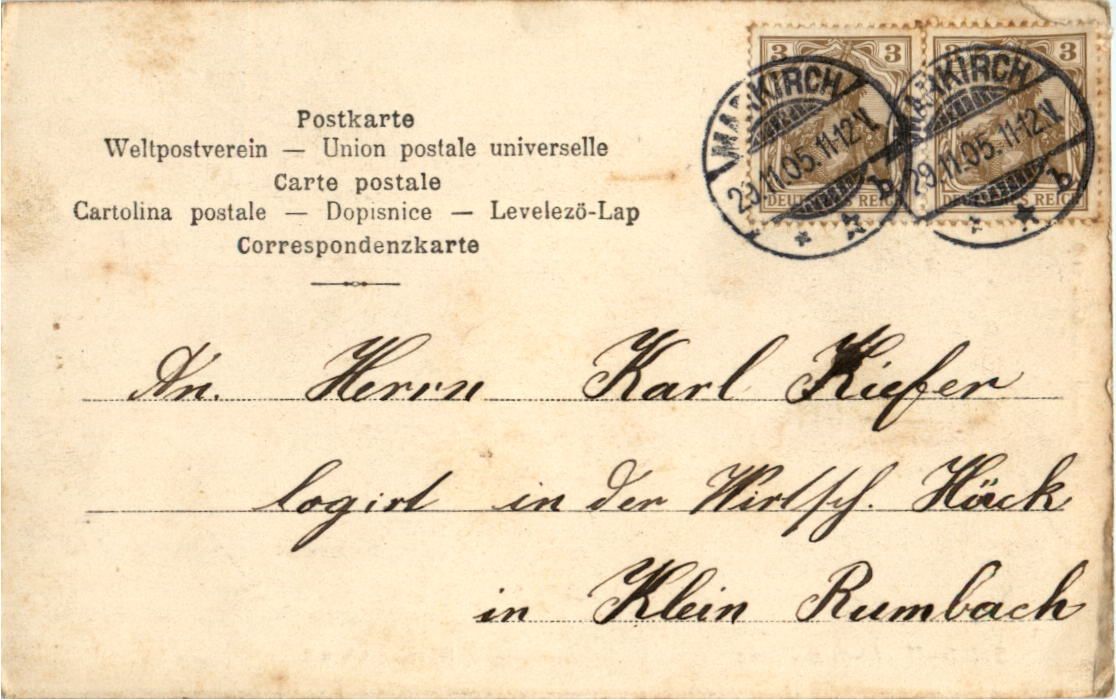 Postkarte
Weltpostverein — Union postale universelle
Carte postale
Cartolina postale — Dopisnice — Levelező-Lap
Correspondenzkarte
3 3
3 3
DEUTSCHES REICH
DEUTSCHES REICH
MARKIRCH
29.11.05.11-12V.
b
MARKIRCH
29.11.05.11-12V.
b
An. Herrn Karl Kiefer
logirt in der Wirtsch. Häck
in Klein Rumbach